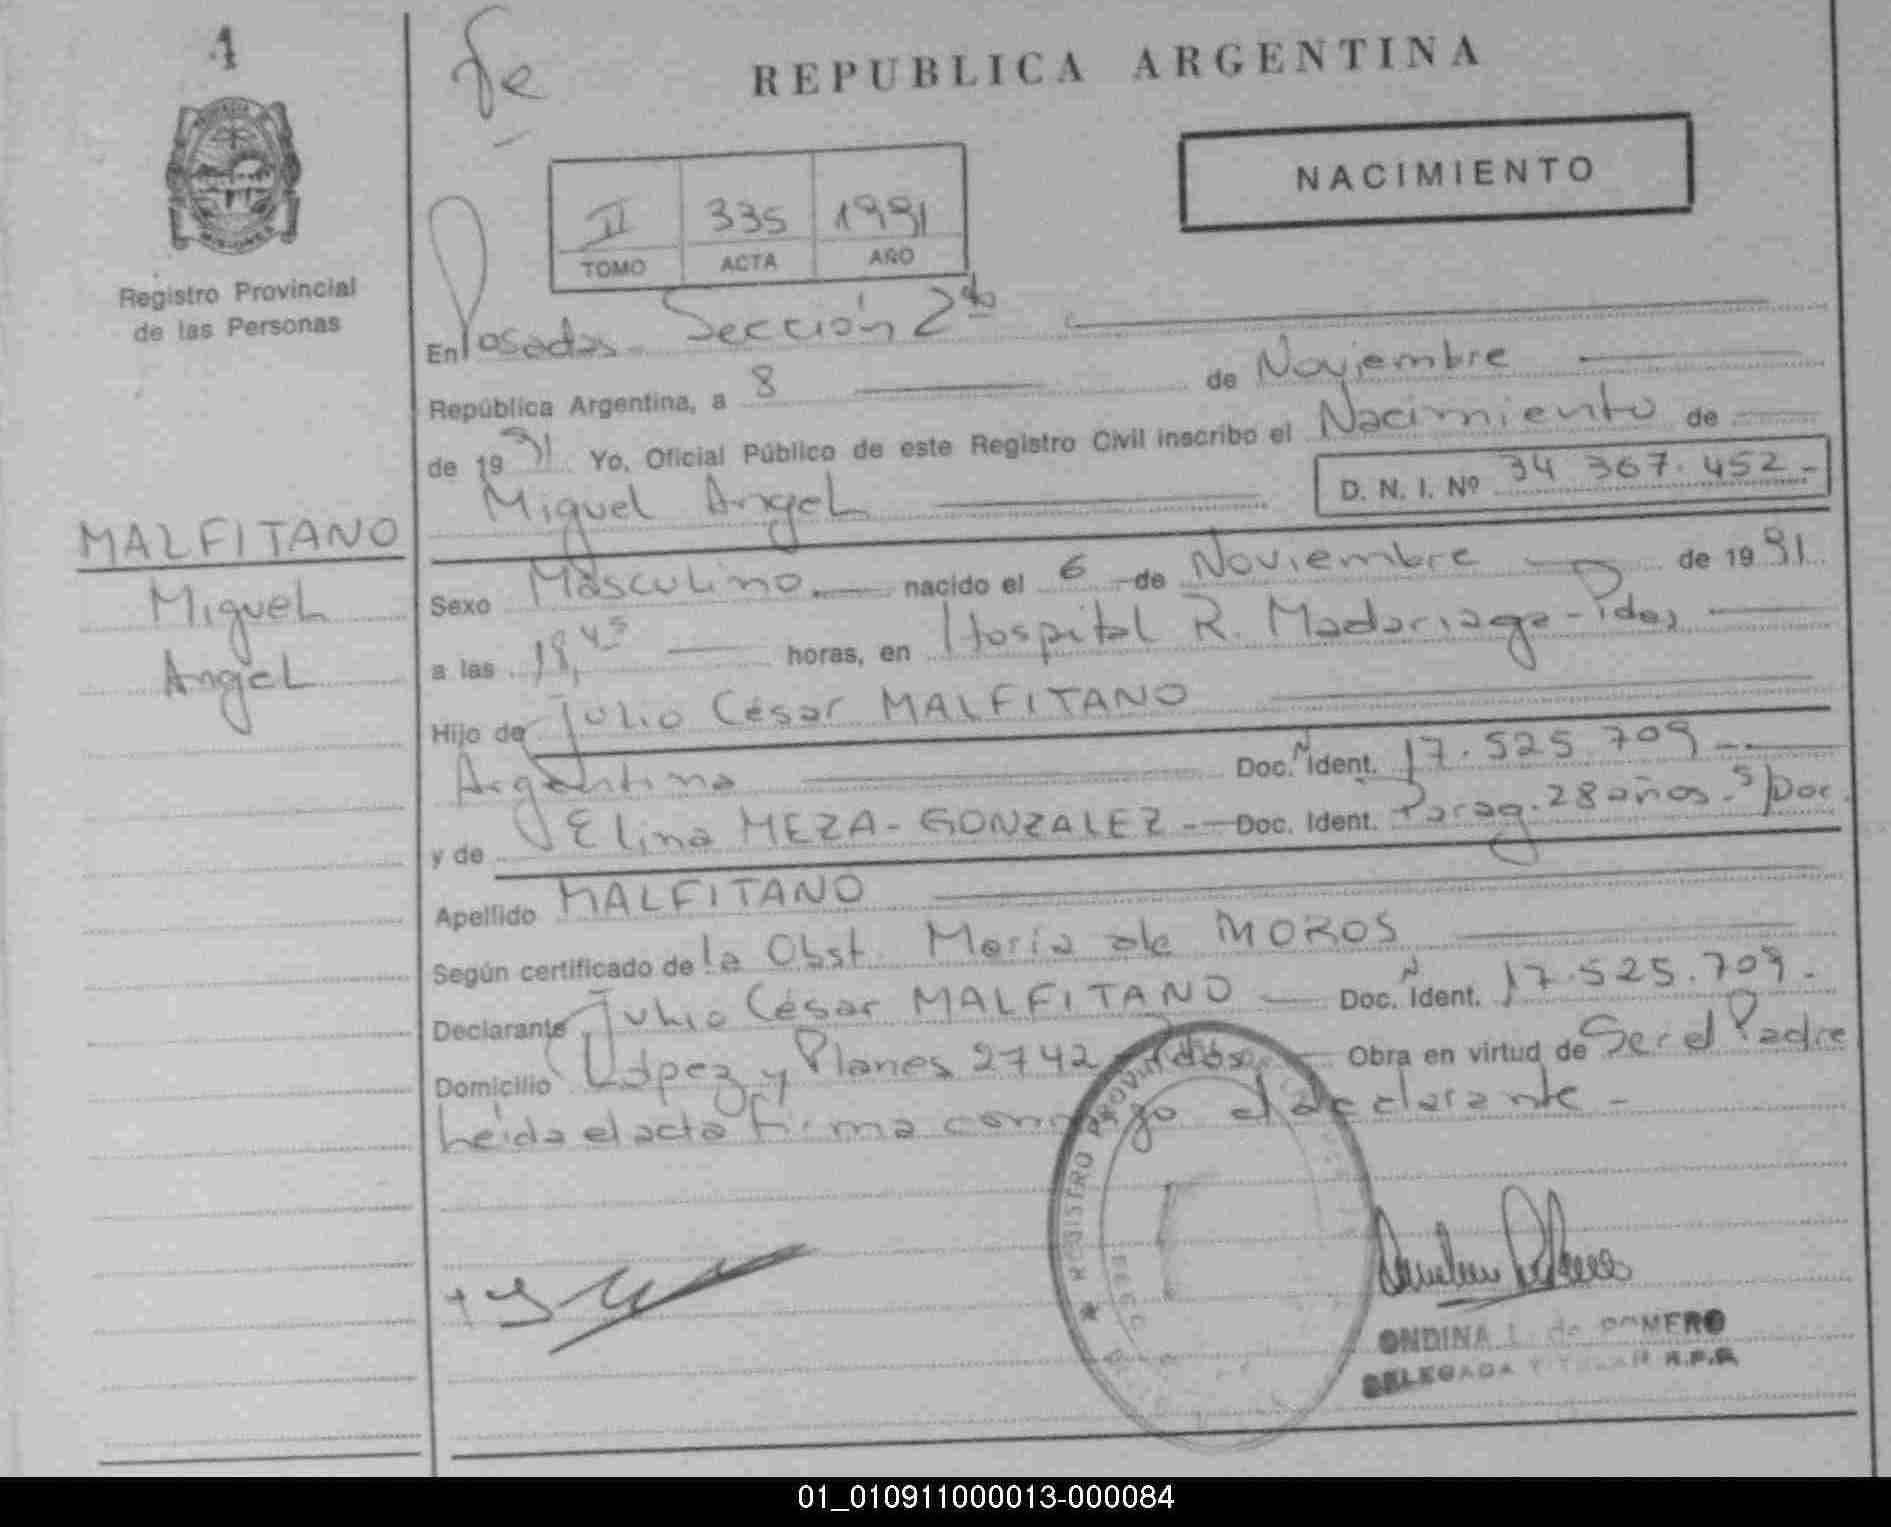 1
Fe
REPUBLICA ARGENTINA
NACIMIENTO
II 335 1991
TOMO ACTA AÑO
MISIONES
Registro Provincial
de las Personas
En Posadas - Sección 2da
República Argentina, a 8 de Noviembre
de 1991 Yo, Oficial Público de este Registro Civil inscribo el Nacimiento de
Miguel Angel D. N. I. Nº 34 367.452-
MALFITANO
Miguel
Angel
Sexo Masculino nacido el 6 de Noviembre de 1991
a las 18,45 horas, en Hospital R. Madariaga - Pdas
Hijo de Julio César MALFITANO
Argentina Doc. N Ident. 17.525.709-
y de Elina MEZA-GONZALEZ - Doc. Ident. Parag. 28 años - S/Doc.
Apellido MALFITANO
Según certificado de la Obst. María de MOROS
Declarante Julio César MALFITANO Doc. N Ident. 17.525.709-
Domicilio López y Planes 2742 - Pdas Obra en virtud de Ser el Padre
Leida el acta firma conmigo el declarante -
REGISTRO PROVINCIAL
ONDINA L. de ROMERO
DELEGADA TITULAR R.P.P.
01_010911000013-000084